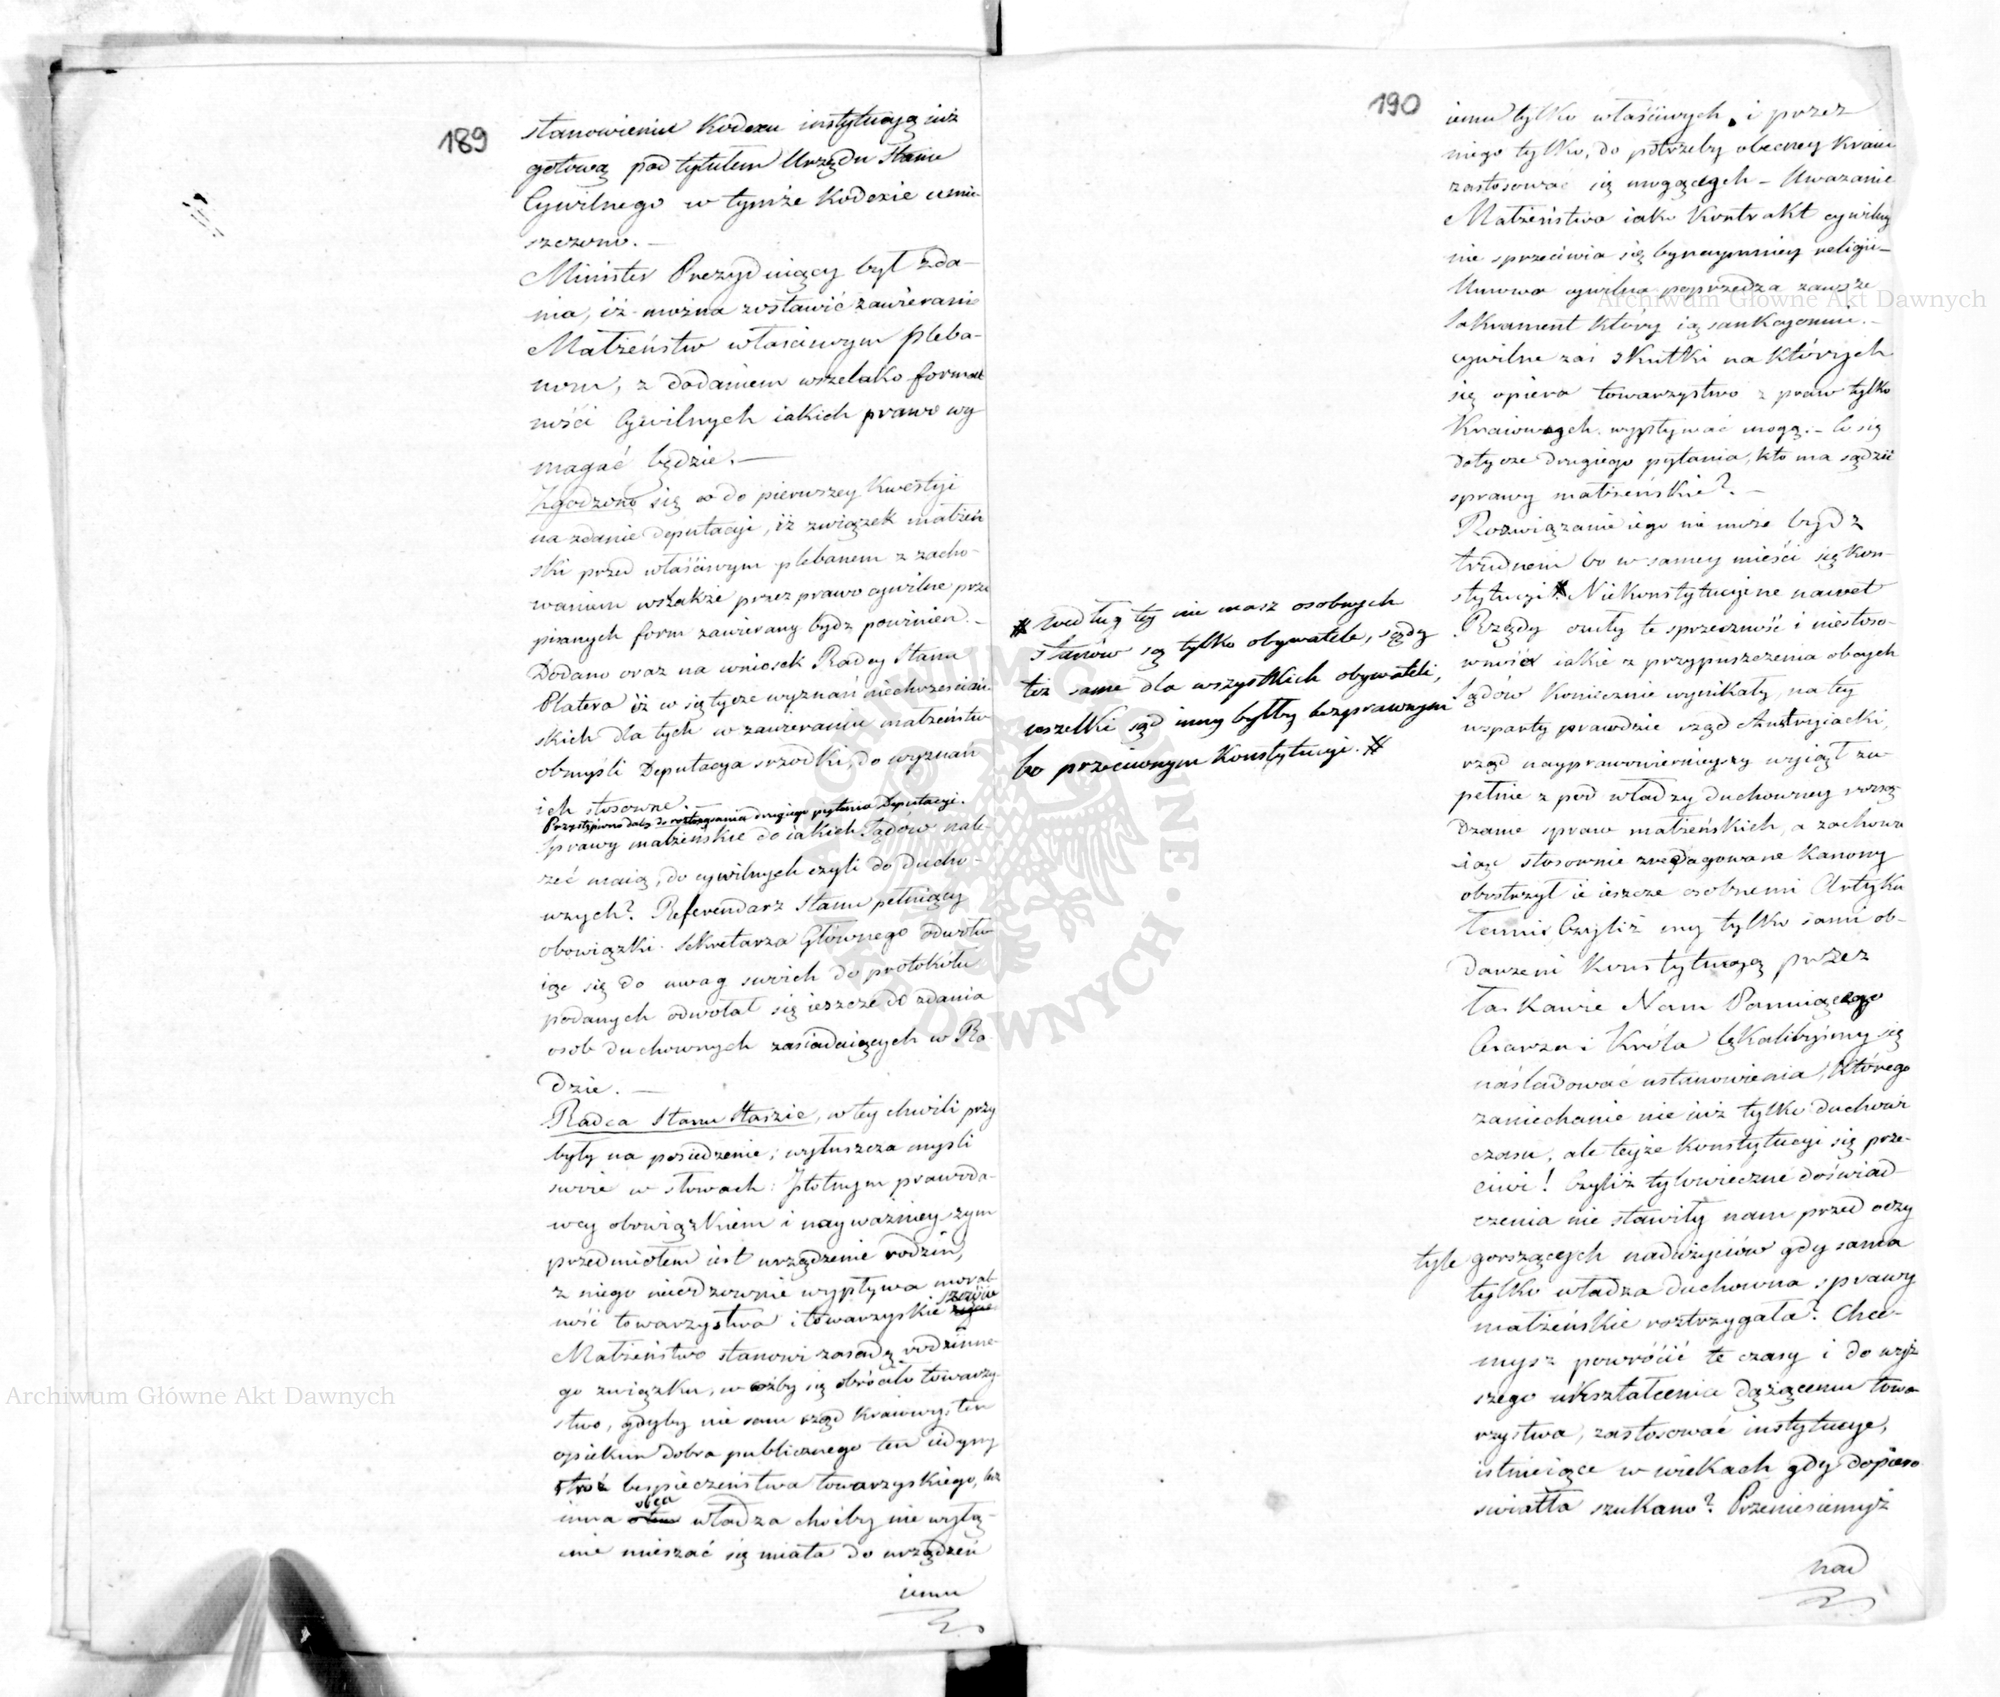 189
stanowieniu Kodexu instytucyą iuż
gotową pod tytułem Urzędu Stanu
Cywilnego w tymże Kodexie umie
szczono. —
Minister Prezyduiący był zda-
nia, iż można zostawić zawieranie
Małżeństw właściwym pleba-
nom, z dodaniem wszelako formal
ności Cywilnych iakich prawo wy
magać będzie. —
Zgodzono się co do pierwszey Kwestyi
na zdanie Deputacyi, iż związek małżeń
ski przed właściwym plebanem z zacho-
waniem wszakże przez prawo cywilne prze
pisanych form zawierany bydź powinien. —
Dodano oraz na wniosek Radcy Stanu
Platera iż w się tycze wyznań niechrześciań
skich dla tych w zawieraniu małżeństw
obmyśli Deputacya srzodki, do wyznań
ich stosowne.
Przystąpiono daley do roztrząsania drugiego pytania Deputacyi.
Sprawy małżeńskie do iakich Sądów nale-
żeć maią, do cywilnych czyli do ducho-
wnych? Referendarz Stanu pełniący
obowiązki Sekretarza Głównego odwołu
iąc się do uwag swoich do protokółu
podanych odwołał się ieszcze do zdania
osob duchownych zasiadaiących w Ra
dzie. —
Radca Stanu Staszic, w tey chwili przy
były na posiedzenie; wyłuszcza myśli
swoie w słowach: Istotnym prawoda-
wcy obowiązkiem i nayważnieyszym
przedmiotem iest urządzenie rodzin,
z niego nieodzownie wypływa moral-
ność towarzystwa i towarzyskie
Małżeństwo stanowi zasadę rodzinne-
go związku, w cóżby się obróciło towarzy
stwo, gdyby nie sam rząd Kraiowy, ten
opiekun dobra publicznego ten iedyny
stróż bespieczeństwa towarzyskiego, lecz
inna obca władza choćby nie wyłą-
cnie mieszać się miała do urządzeń
iemu
190
iemu tylko właściwych, i przez
niego tylko, do potrzeby obecney Kraiu
zastosować się mogących — Uważanie
Małżeństwa iako Kontrakt cywilny
nie sprzeciwia się bynaymniey religii —
Umowa cywilna poprzedza zawsze
Sakrament który ią sankcyonuie. —
cywilne zaś skutki na których
się opiera towarzystwo z praw tylko
Kraiowych wypływać mogą. — Co się
dotycze drugiego pytania, kto ma sądzić
sprawy małżeńskie? —
Rozwiązanie iego nie może bydź
trudnem bo w samey mieści się Kon-
stytucyi # Niekonstytucyine nawet
Rządy czuły te sprzeczność i niestoso-
wność iakie z przypuszczenia obcych
Sądów Koniecznie wynikały, na tey
wsparty prawdzie rząd Austryiacki,
rząd nayprawowiernieyszy wyiął zu-
pełnie z pod władzy duchowney rozsą
dzanie spraw małżeńskich, a zachowu
iąc stosownie zredagowane Kanony
obostrzył ie ieszcze osobnemi Artyku
łami. Czyliż my tylko sami ob-
darzeni Konstytucyą przez
łaskawie Nam Panuiącego
Cesarza i Króla lękalibyśmy się
naśladować ustanowienia, którego
zaniechanie nie iuż tylko duchowi
czasu, ale teyże Konstytucyi się prze-
ciwi! Czyliż tylowieczne doświad
czenia nie stawiły nam przed oczy
tyle gorszących nadużyciów gdy sama
tylko władza duchowna sprawy
małżeńskie roztrzygała? Chce-
mysz powrócić te czasy i do wyż
szego ukształcenia dążącemu towa
rzystwa, zastosować instytucye,
istnieiące w wiekach gdy dopiero
swiatła szukano? Przeniesiemyż
nad
# według tey nie masz osobnych
stanów są tylko obywatele, sądy
też same dla wszystkich obywateli,
wszelki sąd inny byłby bezprawnym
bo przeciwnym Konstytucyi. #
Archiwum Główne Akt Dawnych
Archiwum Główne Akt Dawnych
ARCHIWUM GŁÓWNE AKT DAWNYCH